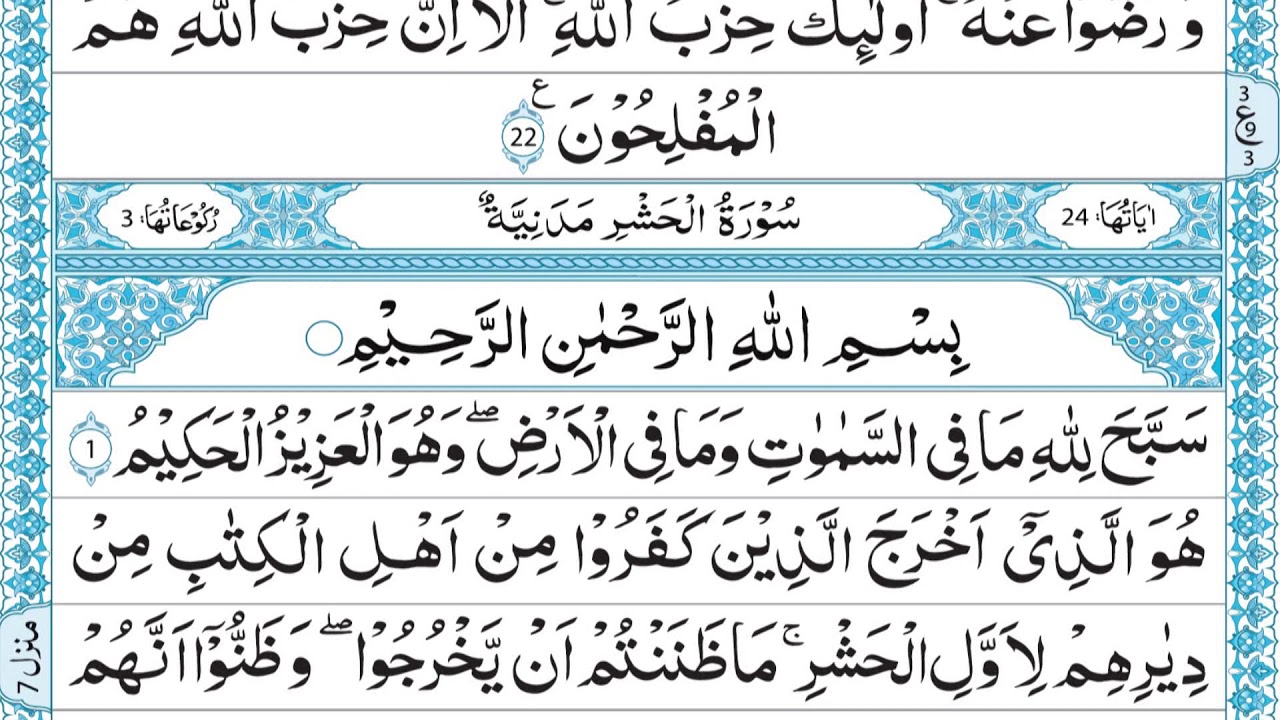 وَرَضُوْا عَنْهُ ؕ اُولٰٓئِكَ حِزْبُ اللّٰهِ ؕ اَلَاۤ اِنَّ حِزْبَ اللّٰهِ هُمُ
الْمُفْلِحُوْنَ ع 22
3 ع 9 3
اٰيَاتُهَا: 24 سُوْرَةُ الْحَشْرِ مَدَنِيَّةٌ رُكُوْعَاتُهَا: 3
بِسْمِ اللّٰهِ الرَّحْمٰنِ الرَّحِيْمِ
سَبَّحَ لِلّٰهِ مَا فِي السَّمٰوٰتِ وَمَا فِي الْاَرْضِ ۖ وَهُوَ الْعَزِيْزُ الْحَكِيْمُ 1
هُوَ الَّذِيْۤ اَخْرَجَ الَّذِيْنَ كَفَرُوْا مِنْ اَهْلِ الْكِتٰبِ مِنْ
دِيٰرِهِمْ لِاَوَّلِ الْحَشْرِ ۚ مَا ظَنَنْتُمْ اَنْ يَّخْرُجُوْا ۖ وَظَنُّوْۤا اَنَّهُمْ
منزل 7